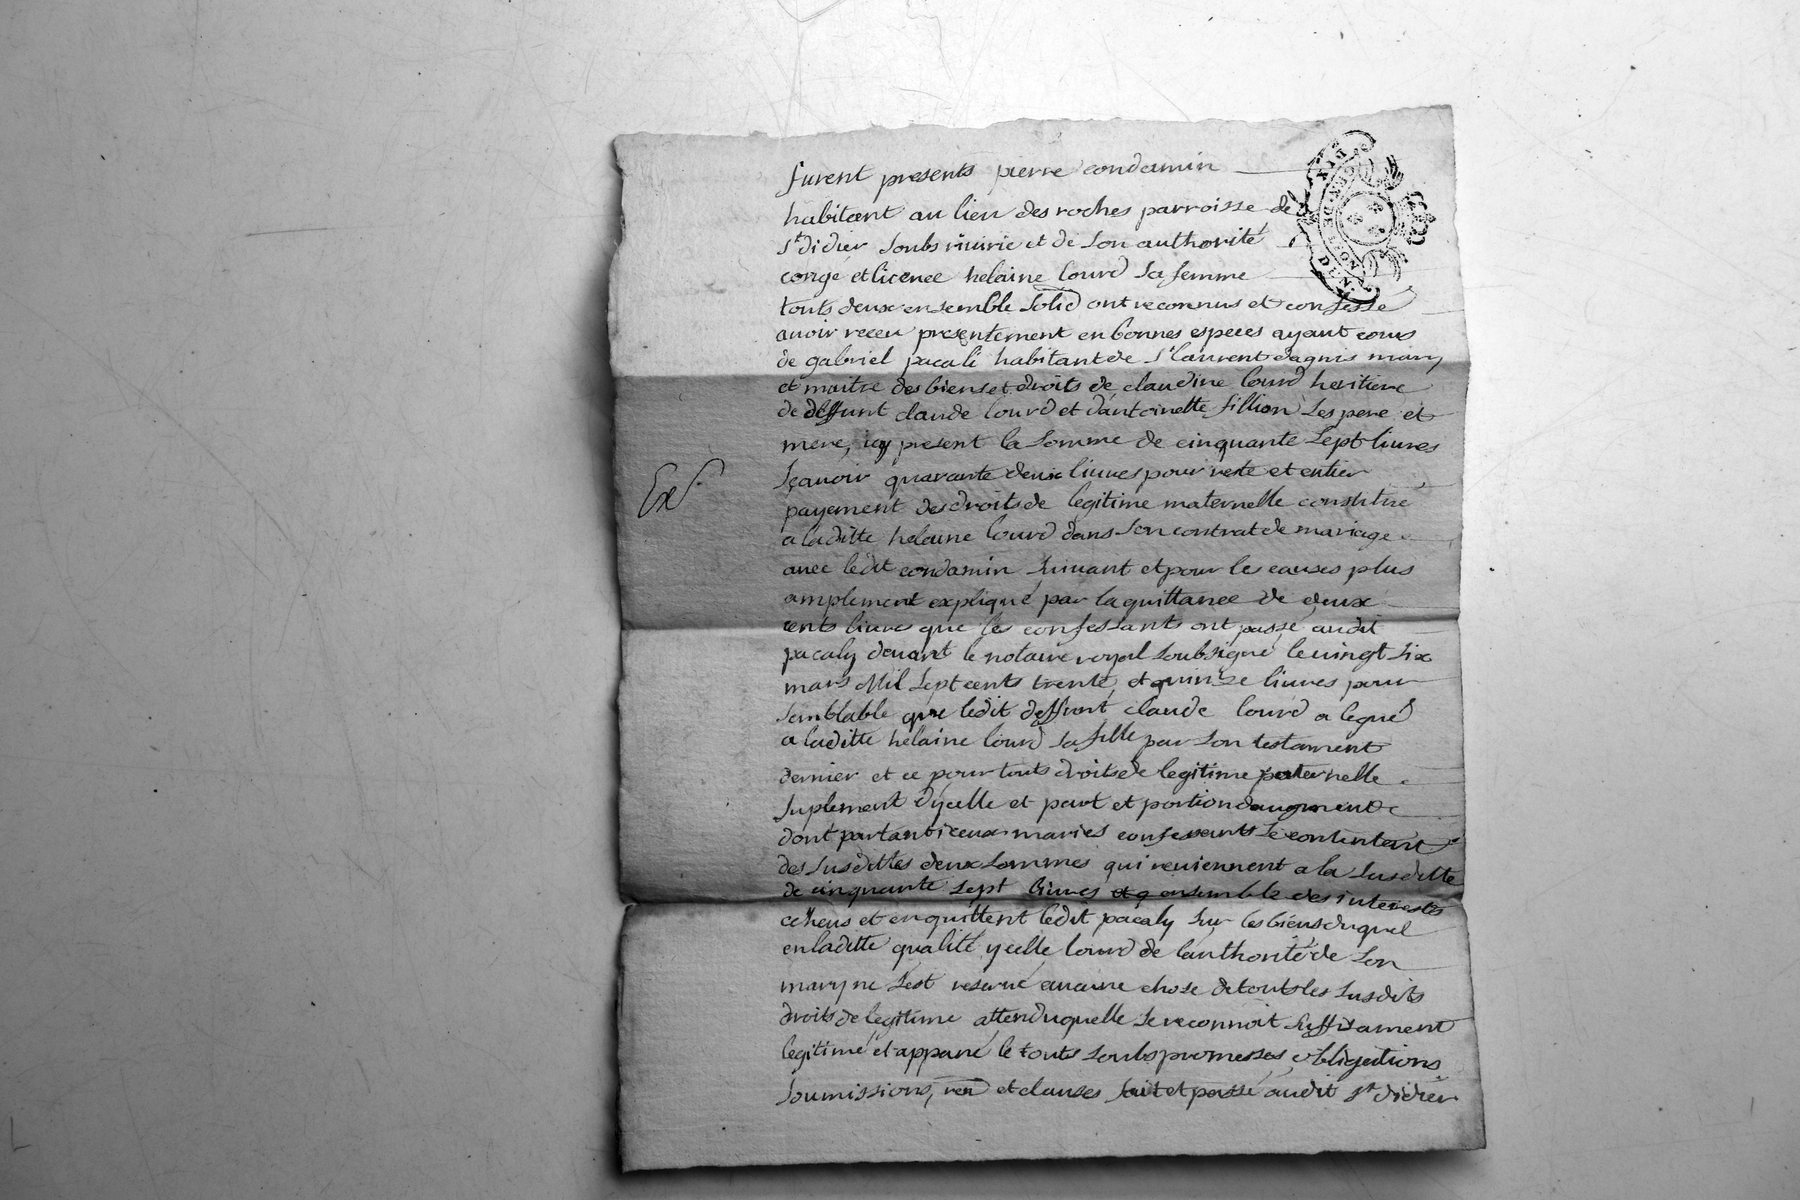 furent presents pierre condamin
habitant au lieu des roches parroisse de
st didier soubs riuirie et de son authorité
congé et licence helaine lourd sa femme
touts deux ensemble solid ont reconnus et confessé
auoir receu presentement en bonnes especes ayant cours
de gabriel pacali habitant de st laurent dagnis mary
et maitre des biens et droits de claudine lourd heritiere
de deffunt claude lourd et dantoinette fillion ses pere et
mere, icy present la somme de cinquante sept liures
sçauoir quarante deux liures pour reste et entier
payement des droits de legitime maternelle constitué
a laditte helaine lourd dans son contrat de mariage
auec ledit condamin suiuant et pour les causes plus
amplement expliqué par la quittance de deux
cents liures que les confessants ont passé audit
pacaly deuant le notaire royal soubsigné le uingt six
mars mil sept cents trente, et quinze liures pour
semblable que ledit deffunt claude lourd a legué
a laditte helaine lourd sa fille par son testament
dernier et ce pour touts droits de legitime paternelle
suplement dycelle et part et portion daugment
dont partant iceux mariés confessants se contentent
des susdittes deux sommes qui reuiennent a la susditte
de cinquante sept liures et q ensemble des interests
echeus et en quittent ledit pacaly sur les biens duquel
en laditte qualité ycelle lourd de lauthorité de son
mary ne sest reserué aucune chose de touts les susdits
droits de legitime attendu quelle se reconnoit suffisament
legitimé et appané le touts soubs promesses, obligations
soumissions, ren et clauses fait et passé audit st didier
Ex
GEN DE LYON